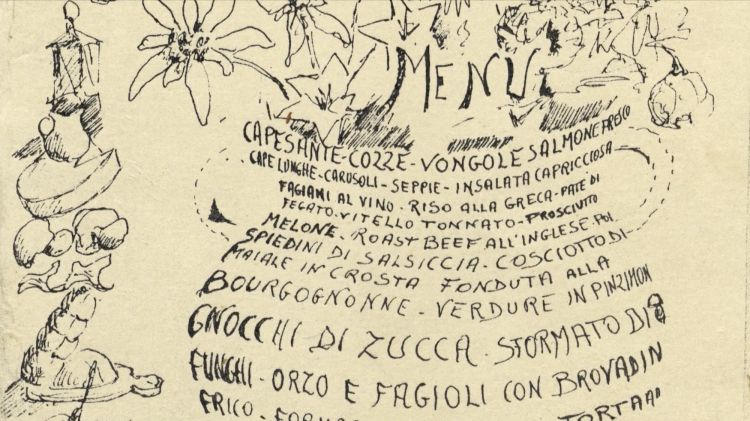 MENU
CAPESANTE - COZZE - VONGOLE SALMONE FRESCO
CAPE LUNGHE - CARUSOLI - SEPPIE - INSALATA CAPRICCIOSA
FAGIANI AL VINO - RISO ALLA GRECA - PATÉ DI
FEGATO - VITELLO TONNATO - PROSCIUTTO
MELONE - ROAST BEEF ALL'INGLESE POI
SPIEDINI DI SALSICCIA - COSCIOTTO DI
MAIALE IN CROSTA FONDUTA ALLA
BOURGOGNONNE - VERDURE IN PINZIMON
GNOCCHI DI ZUCCA - SFORMATO DI
FUNGHI - ORZO E FAGIOLI CON BROVADIN
FRICO -